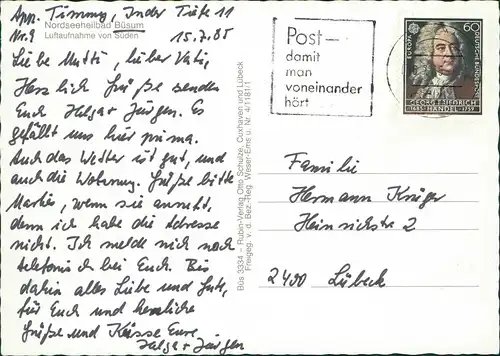 App. Timmy, In der Tiefe 11
Nordseeheilbad Büsum
Nr. 9
Luftaufnahme von Süden
15.7.85
Liebe Mutti, lieber Vati,
Herzlich Grüße senden
Euch Helga + Jürgen. Es
gefällt uns hier prima.
Auch das Wetter ist gut, und
auch die Wohnung. Grüße bitte
wenn sie anruft,
denn ich habe die Adresse
nicht. Ich melde mich noch
telefonisch bei Euch. Bis
dahin alles Liebe und Gute,
für Euch und herzliche
Grüße und Küsse Eure
Helga + Jürgen
Büs 3334 – Rubin-Verlag Otto Schulze, Cuxhaven und Lübeck
Freigeg. v. d. Bez.-Reg. Weser-Ems u. Nr. 4/1181/1
Post-
damit
man
voneinander
hört
EUROPA
60
DEUTSCHE BUNDESPOST
GEORG FRIEDRICH
1685 HANDEL 1759
Familie
Hermann Krüger
Heinrichstr 2
2400 Lübeck